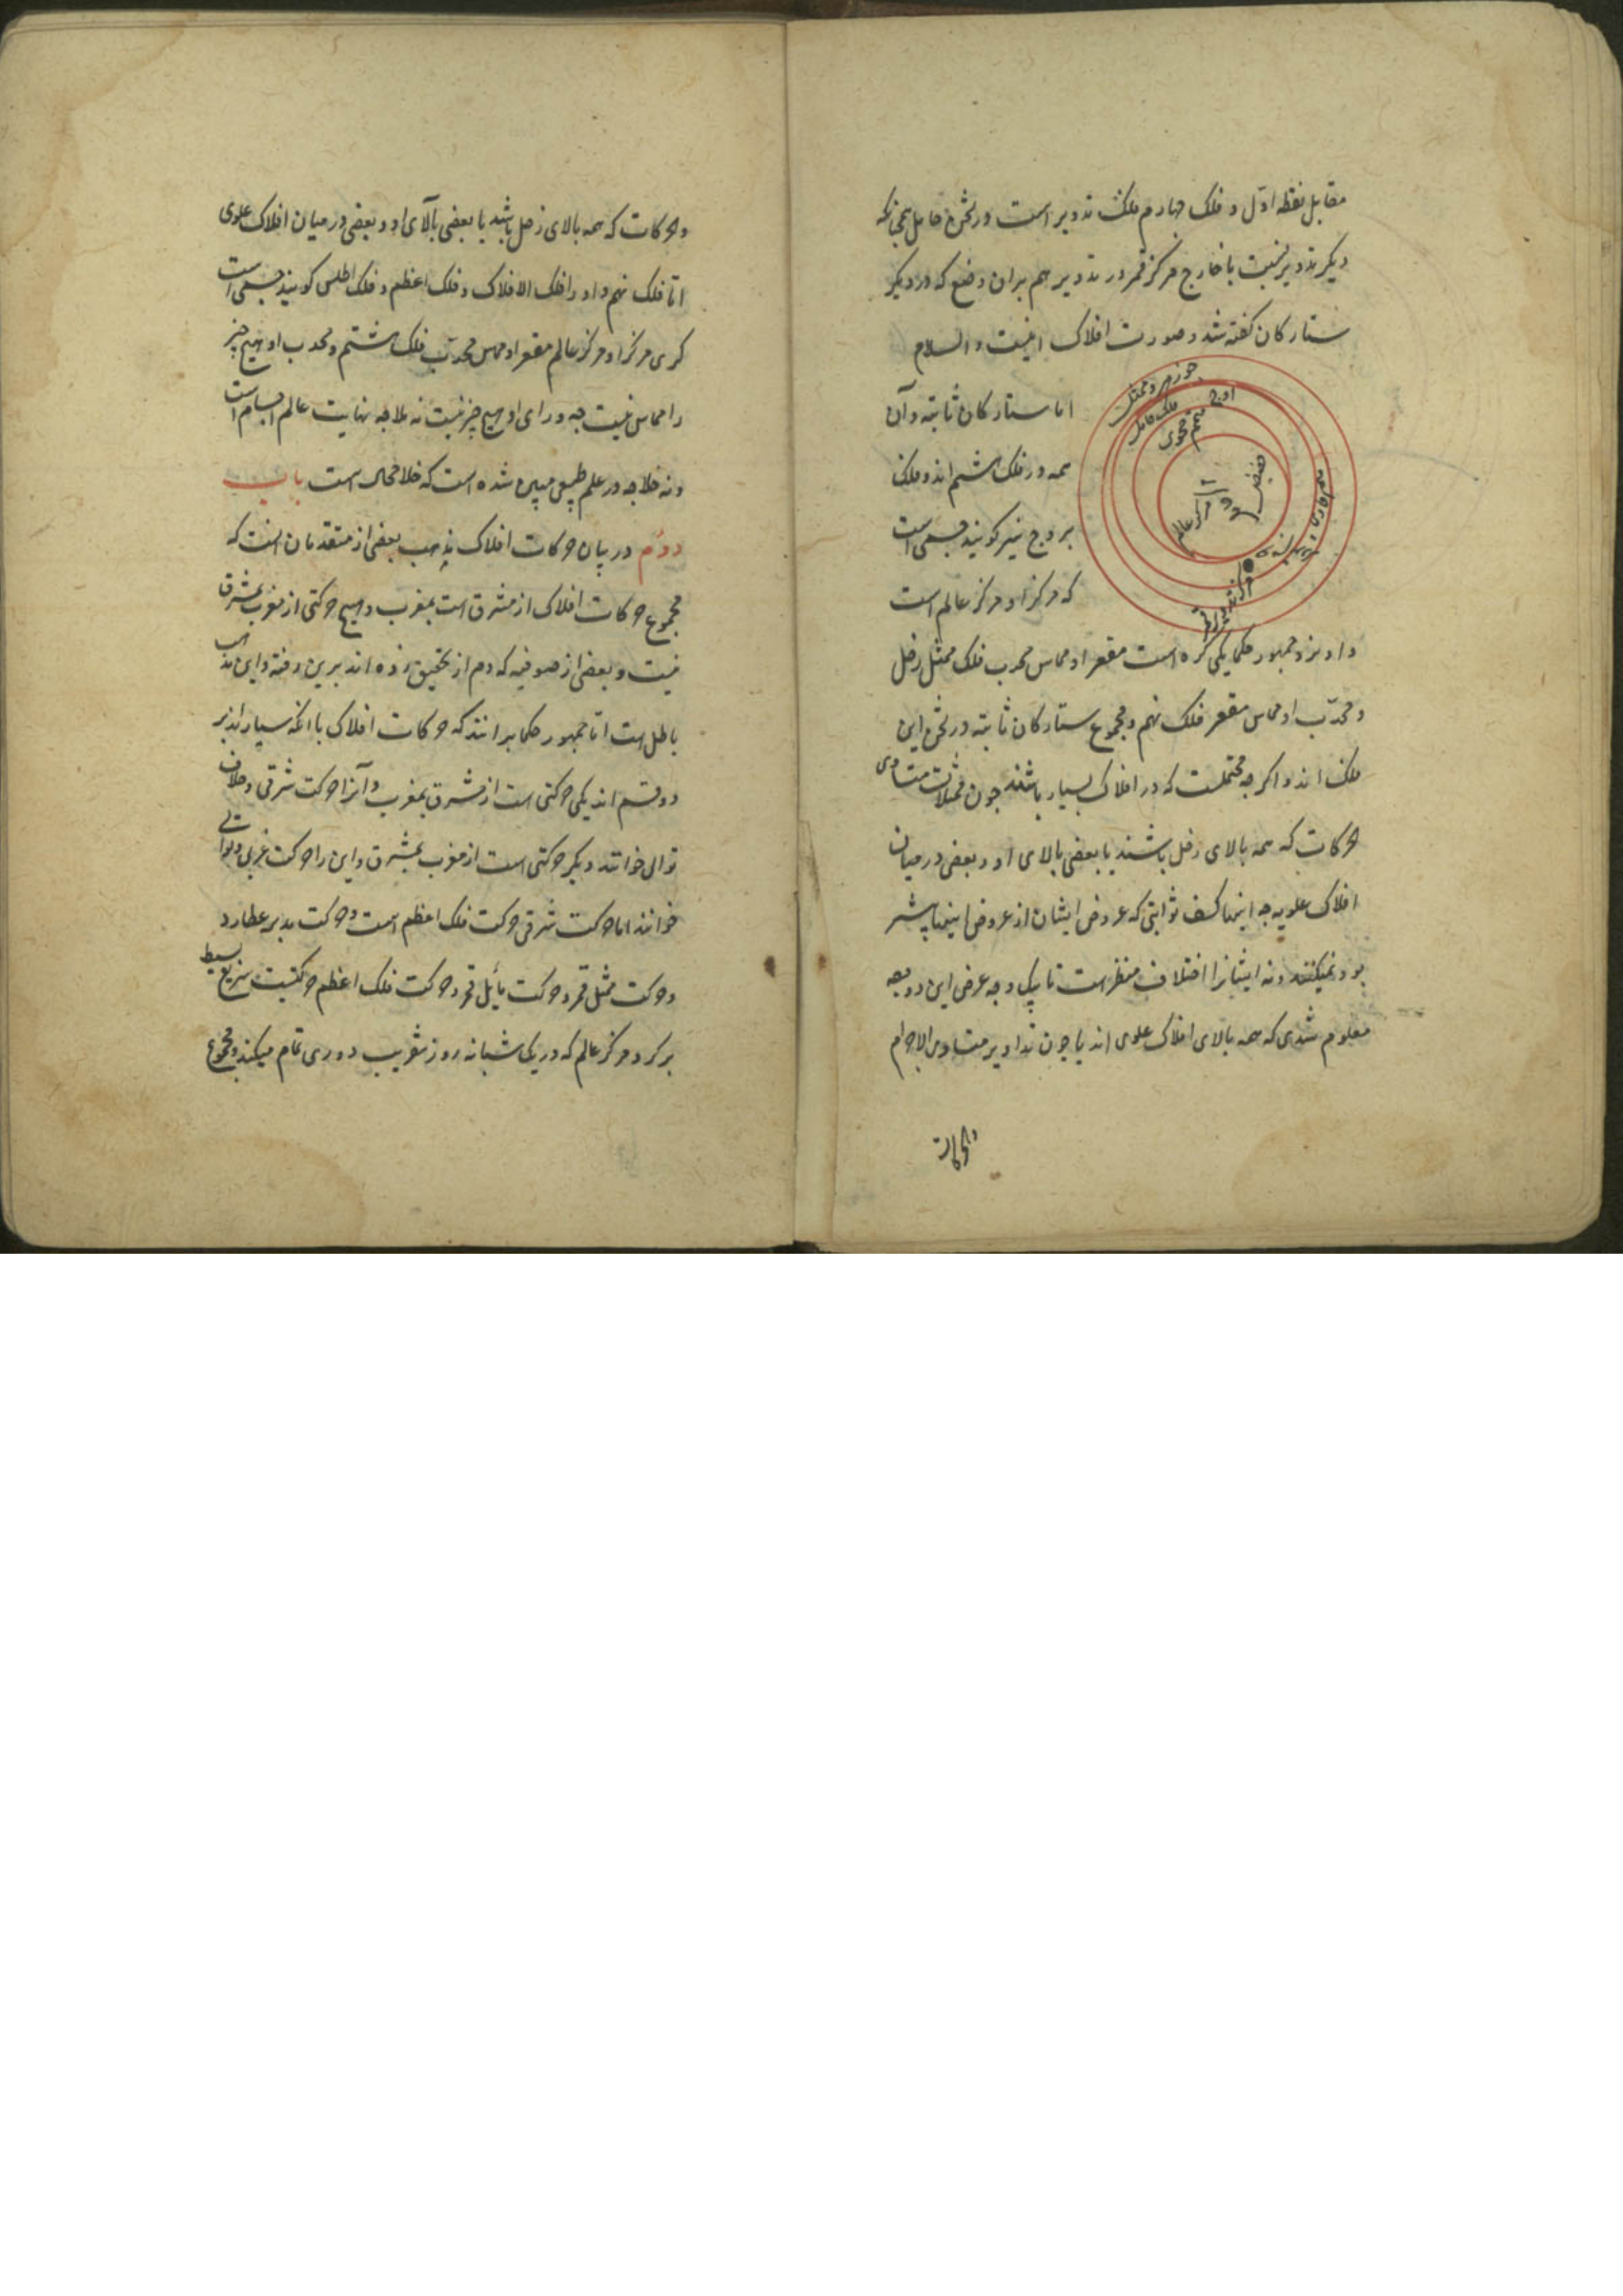 مقابل نقطه اوّل و فلک چهارم فلک تدویر است در ثخن حامل همچنانکه
دیگر تدویر نسبت با خارج مرکز قمر در تدویر هم بران وضع که در دیگر
ستارکان کفته شد و صورت افلاک اینست والسلام
جوزهر و ممثل
فلک مایل
اوج
متمم محوی
حضیض
مرکز عالم
متمم حاوی
مرکز تدویر
قمر
اما ستارکان ثابته و آن
همه در فلک هشتم اند و فلک
بروج نیز کویند جسمی است
که مرکز او مرکز عالم است
و او نزد جمهور حکما یکی کره است مقعر او مماس محدب فلک ممثل زحل
و محدّب او مماس مقعر فلک نهم و مجموع ستارکان ثابته در ثخن این
فلک اند و اکر چه محتملست که در افلاک بسیار باشند چون ممثلات متساوی
حرکات که همه بالای زحل باشند یا بعضی بالای او و بعضی در میان
افلاک علویه چه اینها کسف ثوابتی که عروض ایشان از عروض اینها بیشتر
بود نمیکنند و نه ایشانرا اختلاف منظر است تا بیک وجه عرض این دو وجه
معلوم شدی که همه بالای افلاک علوی اند یا چون تداویر متساوی الاجرام
وحرکات
وحرکات که همه بالای زحل باشد یا بعضی بالای او و بعضی در میان افلاک علوی
امّا فلک نهم و او را فلک الافلاک و فلک اعظم و فلک اطلس کویند جسمی است
کری مرکز او مرکز عالم مقعر او مماس محدّب فلک هشتم و محدب او هیچ چیز
را مماس نیست چه ورای او هیچ چیز نیست نه ملا چه نهایت عالم اجسام است
و نه خلا چه در علم طبیعی مبین شده است که خلا محال است باب
دوم در بیان حرکات افلاک مذهب بعضی از متقدمان انست که
مجموع حرکات افلاک از مشرق است بمغرب و هیچ حرکتی از مغرب بمشرق
نیست و بعضی از صوفیه که دم از تحقیق زده اند برین رفته و این مذهب
باطل است امّا جمهور حکما برانند که حرکات افلاک با انکه بسیار اند بر
دو قسم اند یکی حرکتی است از مشرق بمغرب و آنرا حرکت شرقی و خلاف
توالی خوانند دیکر حرکتی است از مغرب بمشرق و این را حرکت غربی و توالی
خوانند اما حرکت شرقی حرکت فلک اعظم است و حرکت مدیر عطارد
و حرکت ممثل قمر و حرکت مائل قمر و حرکت فلک اعظم حرکتیست سریع بسیط
بر کرد مرکز عالم که در یک شبانه روز بتقریب دوری تمام میکند و مجموع